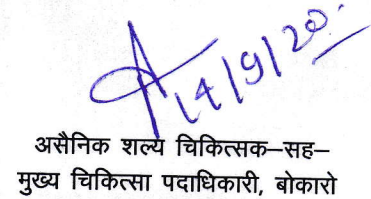 14/9/20
असैनिक शल्य चिकित्सक–सह–
मुख्य चिकित्सा पदाधिकारी, बोकारो